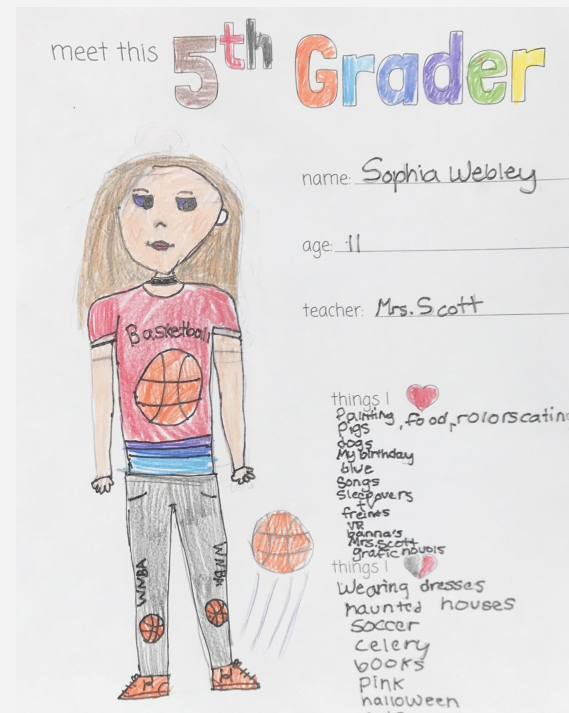 meet this 5th Grader
name: Sophia Webley
age: 11
teacher: Mrs. Scott
Basketball
WNBA
WNBA
things I
Painting, food, rolorscatin
Pigs
dogs
My birthday
blue
Songs
Sleepovers
tv
freinds
VR
banna's
Mrs. Scott
grafic novols
things I
Wearing dresses
haunted houses
soccer
celery
books
pink
halloween